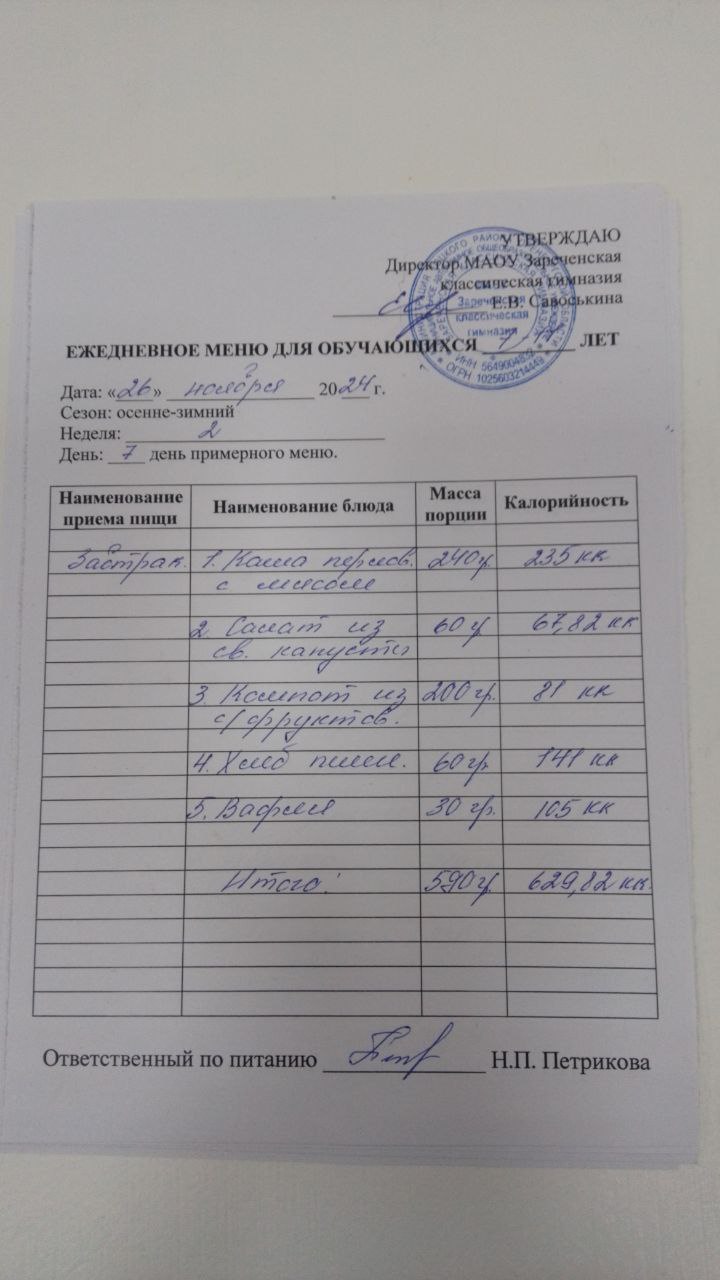 УТВЕРЖДАЮ
Директор МАОУ Зареченская
классическая гимназия
Е.В. Савоськина
Зареченская
классическая
гимназия
ИНН 5649004832
ОГРН 1025603214449
ЕЖЕДНЕВНОЕ МЕНЮ ДЛЯ ОБУЧАЮЩИХСЯ ЛЕТ
Дата: «26» ноября 2024 г.
Сезон: осенне-зимний
Неделя: 2
День: 7 день примерного меню.
Наименование приема пищи Наименование блюда Масса порции Калорийность
Завтрак. 1. Каша перлов. 240 г. 235 кк
с мясом
2. Салат из 60 г. 67,82 кк
св. капусты
3. Компот из 200 гр. 81 кк
с/фруктов.
4. Хлеб пшен. 60 гр. 141 кк
5. Вафля 30 гр. 105 кк
Итого: 590 г. 629,82 кк.
Ответственный по питанию Н.П. Петрикова